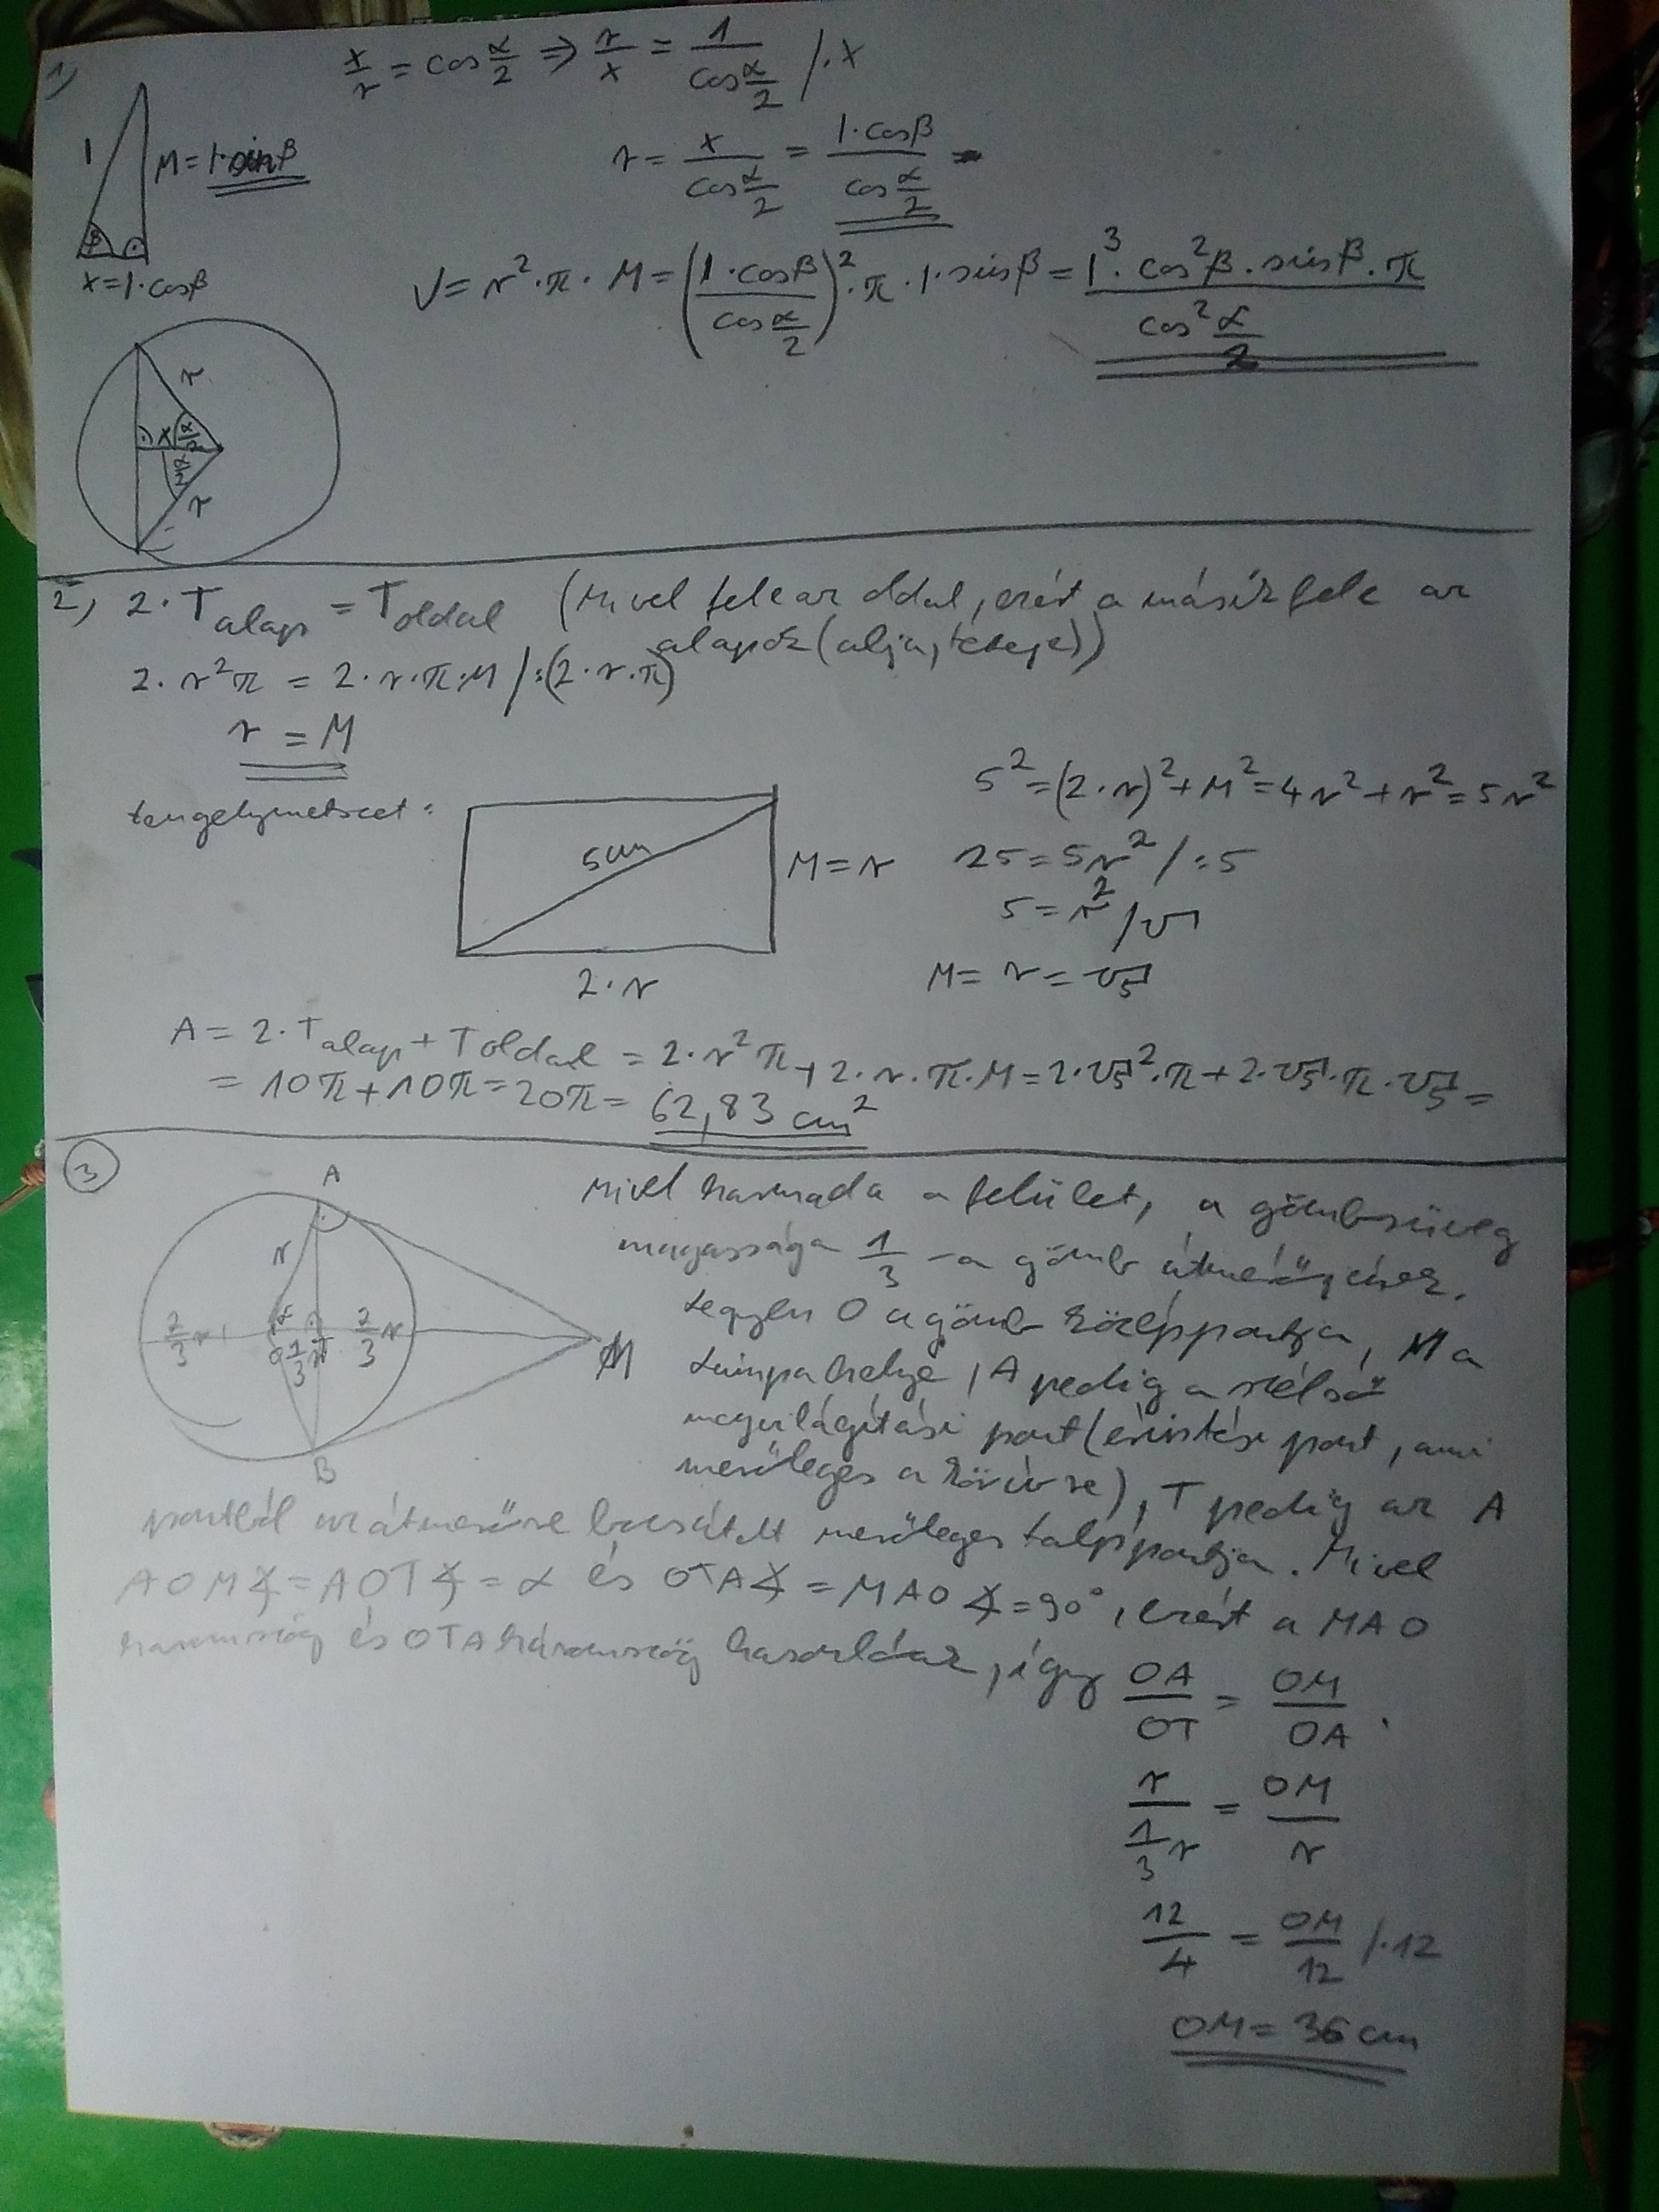 1)
x/r = cos α/2 ⇒ r/x = 1/(cos α/2) /·x
l
M = l·sinβ
β
x = l·cosβ
r = x/(cos α/2) = (l·cosβ)/(cos α/2)
V = r²·π·M = ((l·cosβ)/(cos α/2))²·π·l·sinβ = (l³·cos²β·sinβ·π)/(cos² α/2)
r
x α/2
α/2
r
2) 2·Talap = Toldal (Mivel fele az oldal, ezért a másik fele az
alapok (alja, teteje))
2·r²π = 2·r·π·M /:(2·r·π)
r = M
tengelymetszet:
5cm
M = r
2·r
5² = (2·r)² + M² = 4r² + r² = 5r²
25 = 5r² /:5
5 = r² /√
M = r = √5
A = 2·Talap + Toldal = 2·r²π + 2·r·π·M = 2·√5²·π + 2·√5·π·√5 =
= 10π + 10π = 20π = 62,83 cm²
3
A
r
2/3 r α 2/3 r
O 1/3 r T
M
B
Mivel harmada a felület, a gömbsüveg
magassága 1/3-a a gömb átmérőjének.
Legyen O a gömb középpontja, M a
lámpa helye, A pedig a szélső
megvilágítási pont (érintési pont, ami
merőleges a körívre), T pedig az A
pontból az átmérőre bocsátott merőleges talppontja. Mivel
AOM∢ = AOT∢ = α és OTA∢ = MAO∢ = 90°, ezért a MAO
háromszög és OTA háromszög hasonlóak, így OA/OT = OM/OA.
r/(1/3 r) = OM/r
12/4 = OM/12 /·12
OM = 36 cm